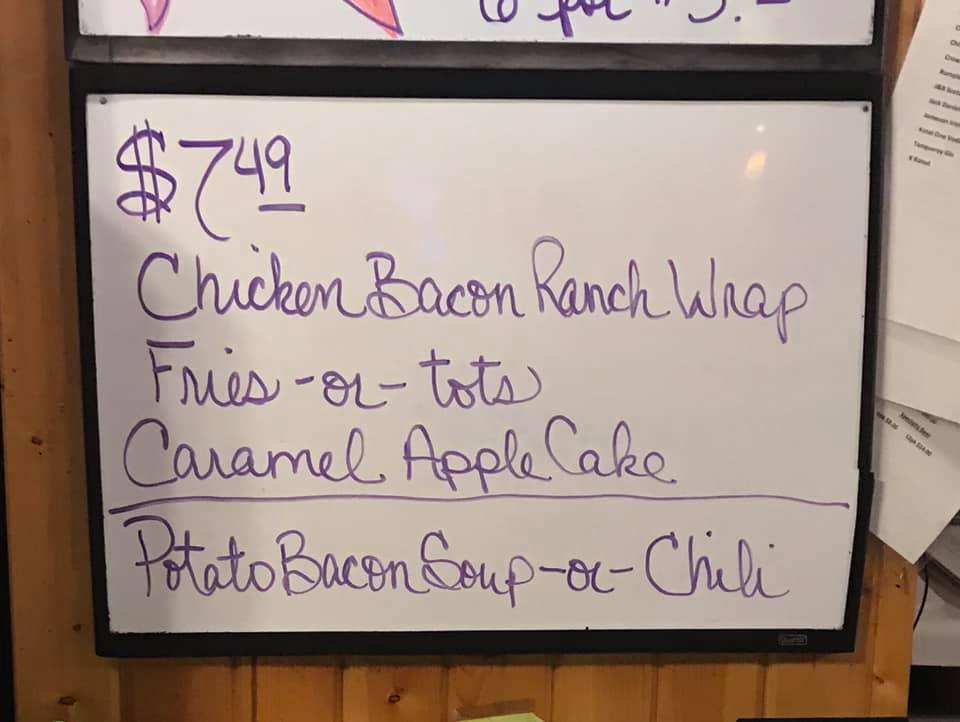 6 for $3.
$7.49
Chicken Bacon Ranch Wrap
Fries -or- tots
Caramel Apple Cake
Potato Bacon Soup -or- Chili
Quartet